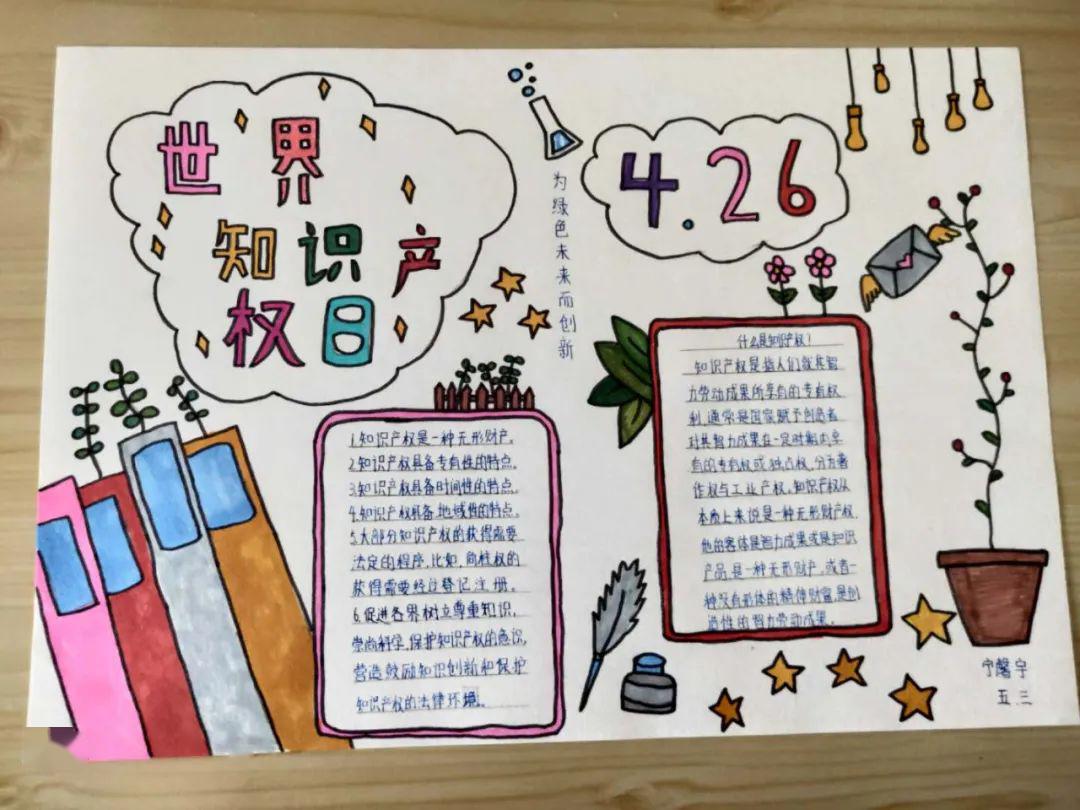 世界
知识产
权日
为绿色未来而创新
4.26
1.知识产权是一种无形财产。
2.知识产权具备专有性的特点。
3.知识产权具备时间性的特点。
4.知识产权具备地域性的特点。
5.大部分知识产权的获得需要
法定的程序,比如,商标权的
获得需要经过登记注册。
6.促进各界树立尊重知识,
崇尚科学,保护知识产权的意识,
营造鼓励知识创新和保护
知识产权的法律环境。
什么是知识产权?
知识产权是指人们就其智
力劳动成果所享有的专有权
利,通常是国家赋予创造者
对其智力成果在一定时期内享
有的专有权或独占权,分为著
作权与工业产权。知识产权从
本质上来说是一种无形财产权,
他的客体是智力成果或是知识
产品,是一种无形财产,或者一
种没有形体的精神财富,是创
造性的智力劳动成果。
宁馨宇
五.三